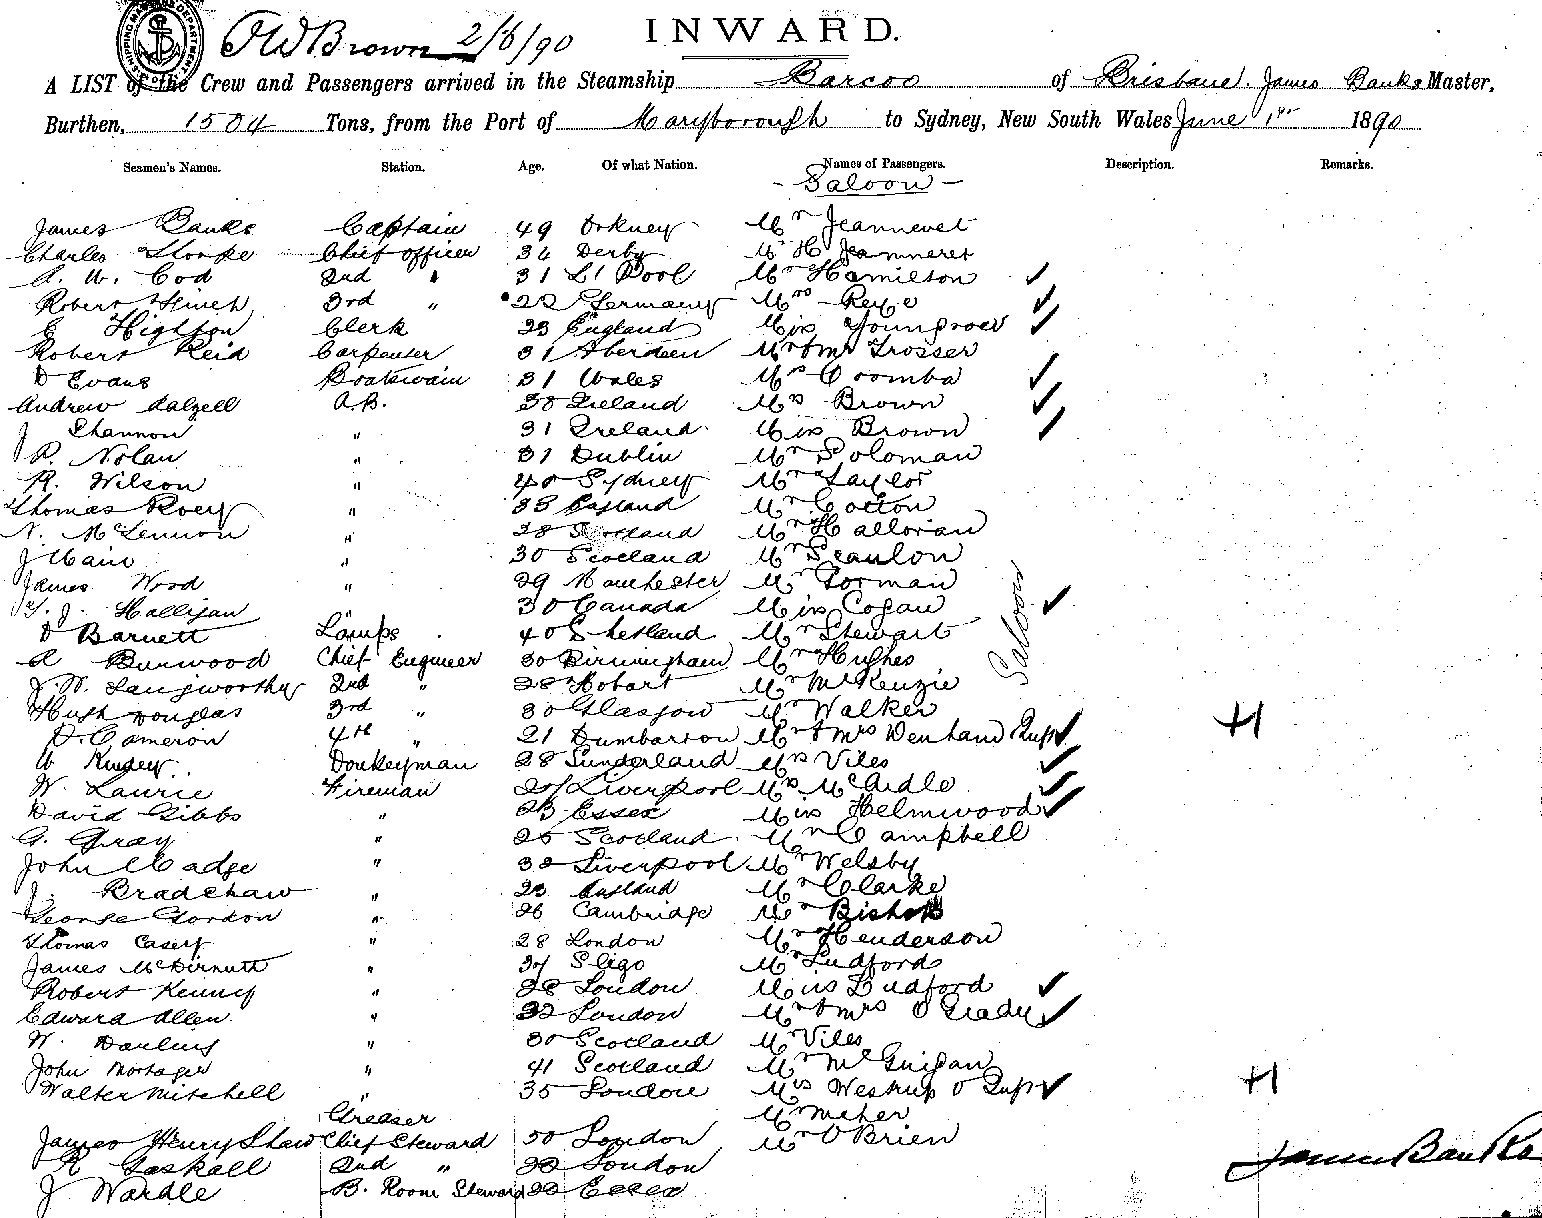 SHIPPING MASTERS DEPARTMENT
J W Brown 2/6/90
INWARD.
A LIST of the Crew and Passengers arrived in the Steamship Barcoo of Brisbane. James Banks Master,
Burthen, 1504 Tons, from the Port of Maryborough to Sydney, New South Wales June 1st 1890
Seamen's Names. Station. Age. Of what Nation. Names of Passengers. Description. Remarks.
- Saloon -
James Banks Captain 49 Orkney Mr Jeanneret
Charles Chief officer 36 Derby Mr H Jeanneret
A. W. Cod 2nd " 31 L'Pool Mr Hamilton
Robert 3rd " 22 Germany Mrs
E Highton Clerk 23 England Miss
Robert Reid Carpenter 31 Aberdeen Mr & Mrs Trosser
D Evans Boatswain 31 Wales Mrs Coomba
Andrew Dalzell A.B. 38 Ireland Mrs Brown
J Shannon " 31 Ireland Miss Brown
P. Nolan " 31 Dublin Mr Soloman
R. Wilson " 40 Sydney Mr Taylor
Thomas " 33 England Mr Cotton
N. McLennon " 28 Scotland Mr Halloran
J Main " 30 Scotland Mr Scanlon
James Wood " 29 Manchester Mr Gorman
T. J. Halligan " 30 Canada Miss Cogan
D Barnett Lamps 40 Shetland Mr Stewart
A Burwood Chief Engineer 30 Birmingham Mr Hughes
Saloon
J. W. Langworthy 2nd " 28 Hobart Mr McKenzie
Hugh Douglas 3rd " 30 Glasgow Mr Walker
D. Cameron 4th " 21 Dumbarton Mr & Mrs Denham & Inft H
W Kinsey Donkeyman 28 Sunderland Mrs Viles
W. Laurie Fireman Liverpool Mrs McArdle
David Gibbs " 23 Essex Miss Helmwood
G. Gray " 25 Scotland Mr Campbell
John Madge " 32 Liverpool Mr Welsby
J. Bradshaw " 23 England Mr Clarke
George Gordon " 26 Cambridge Mr Bishop
Thomas Casey " 28 London Mr Henderson
James McDirmott " 34 Sligo Mr Ludford
Robert Kenney " 28 London Miss Ludford
Edward Allen " 32 London Mr & Mrs O'Grady
W. Darling " 30 Scotland Mr Viles
John " 41 Scotland Mr McGuigan
Walter Mitchell " 35 London Mrs Westrup & Inft H
Greaser Mr Meher
James Henry Shaw Chief Steward 50 London Mr O'Brien
R Gaskall 2nd " 22 London James Banks
J Wardle B. Room Steward 22 Essex